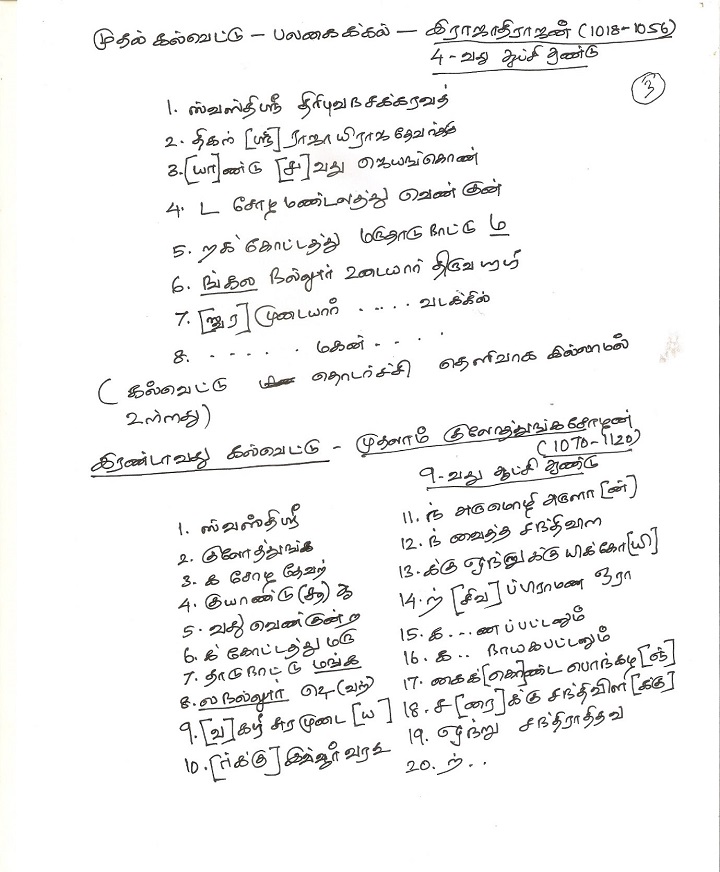 முதல் கல்வெட்டு – பலகைக்கல் – இராஜாதிராஜன் (1018-1056)
4-வது ஆட்சி ஆண்டு
3
1. ஸ்வஸ்திஸ்ரீ திரிபுவநசக்கரவத்
2. திகள் [ஸ்ரீ] ராஜாயிராஜதேவர்க்கி
3. [யா]ண்டு [சு]வது ஜெயங்கொண்
4. ட சோழ மண்டலத்து வெண்குன்
5. றக் கோட்டத்து மருதாடு நாட்டு ம
6. ங்கல நல்லூர் உடையார் திருவகழீ
7. முடையார் ..... வடக்கில்
8. ..... மகன் ....
(கல்வெட்டு தொடர்ச்சி தெளிவாக இல்லாமல்
உள்ளது)
இரண்டாவது கல்வெட்டு – முதலாம் குலோத்துங்கசோழன்
(1070-1120)
9-வது ஆட்சி ஆண்டு
1. ஸ்வஸ்திஸ்ரீ
2. குலோத்துங்க
3. க சோழ தேவற்
4. குயாண்டு (கூ) ஆ
5. வது வெண்குன்ற
6. க் கோட்டத்து மரு
7. தாடு நாட்டு மங்க
8. லநல்லூர்
9. [வ]கழீசுரமுடை [ய]
10. [ர்க்கு] இவ்வூர்
11. ந் அருமொழி அருளா [ன்]
12. ந் வைத்த சந்திவிள
13. க்கு ஒந்னுக்கு யிக்கோ[யி]
14. ற் [சிவ] ப்பிராமண ஒரா
15. க...ணப்பட்டனும்
16. க.. நாயகபட்டனும்
17. கைக்[கொ]ண்ட பொந்கழ[ஞ்]
18. ச[ரை]க்கு சந்திவிள[க்கு]
19. ஒந்று சந்திராதித்வ
20. ற்..